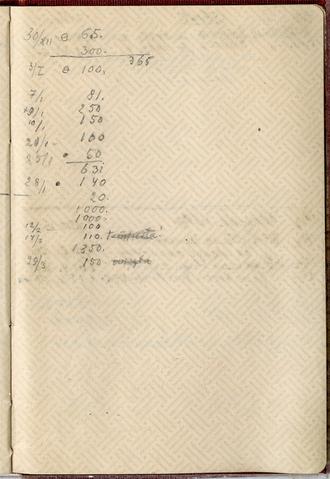 30/XII ⊖ 65.
300.
365
3/I ⊖ 100.
7/1 81.
10/1 250
10/1 150
20/1 100
25/1 • 50
631
28/1 • 140
20.
1000.
1000.
12/2 100
17/2 110.
1350.
29/3 150